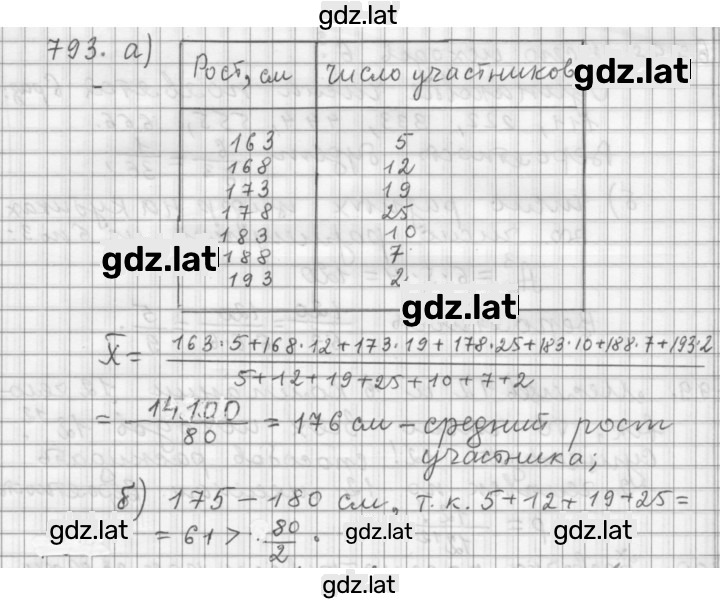 gdz.lat
793. а)
Рост, см число участников gdz.lat
163 5
168 12
173 19
178 25
183 10
gdz.lat 188 7
193 2
gdz.lat
X̄ = 163·5+168·12+173·19+178·25+183·10+188·7+193·2
5+12+19+25+10+7+2
= 14100 / 80 = 176 см – средний рост
участника;
б) 175 – 180 см, т.к. 5+12+19+25=
gdz.lat = 61 > 80/2 . gdz.lat gdz.lat
gdz.lat